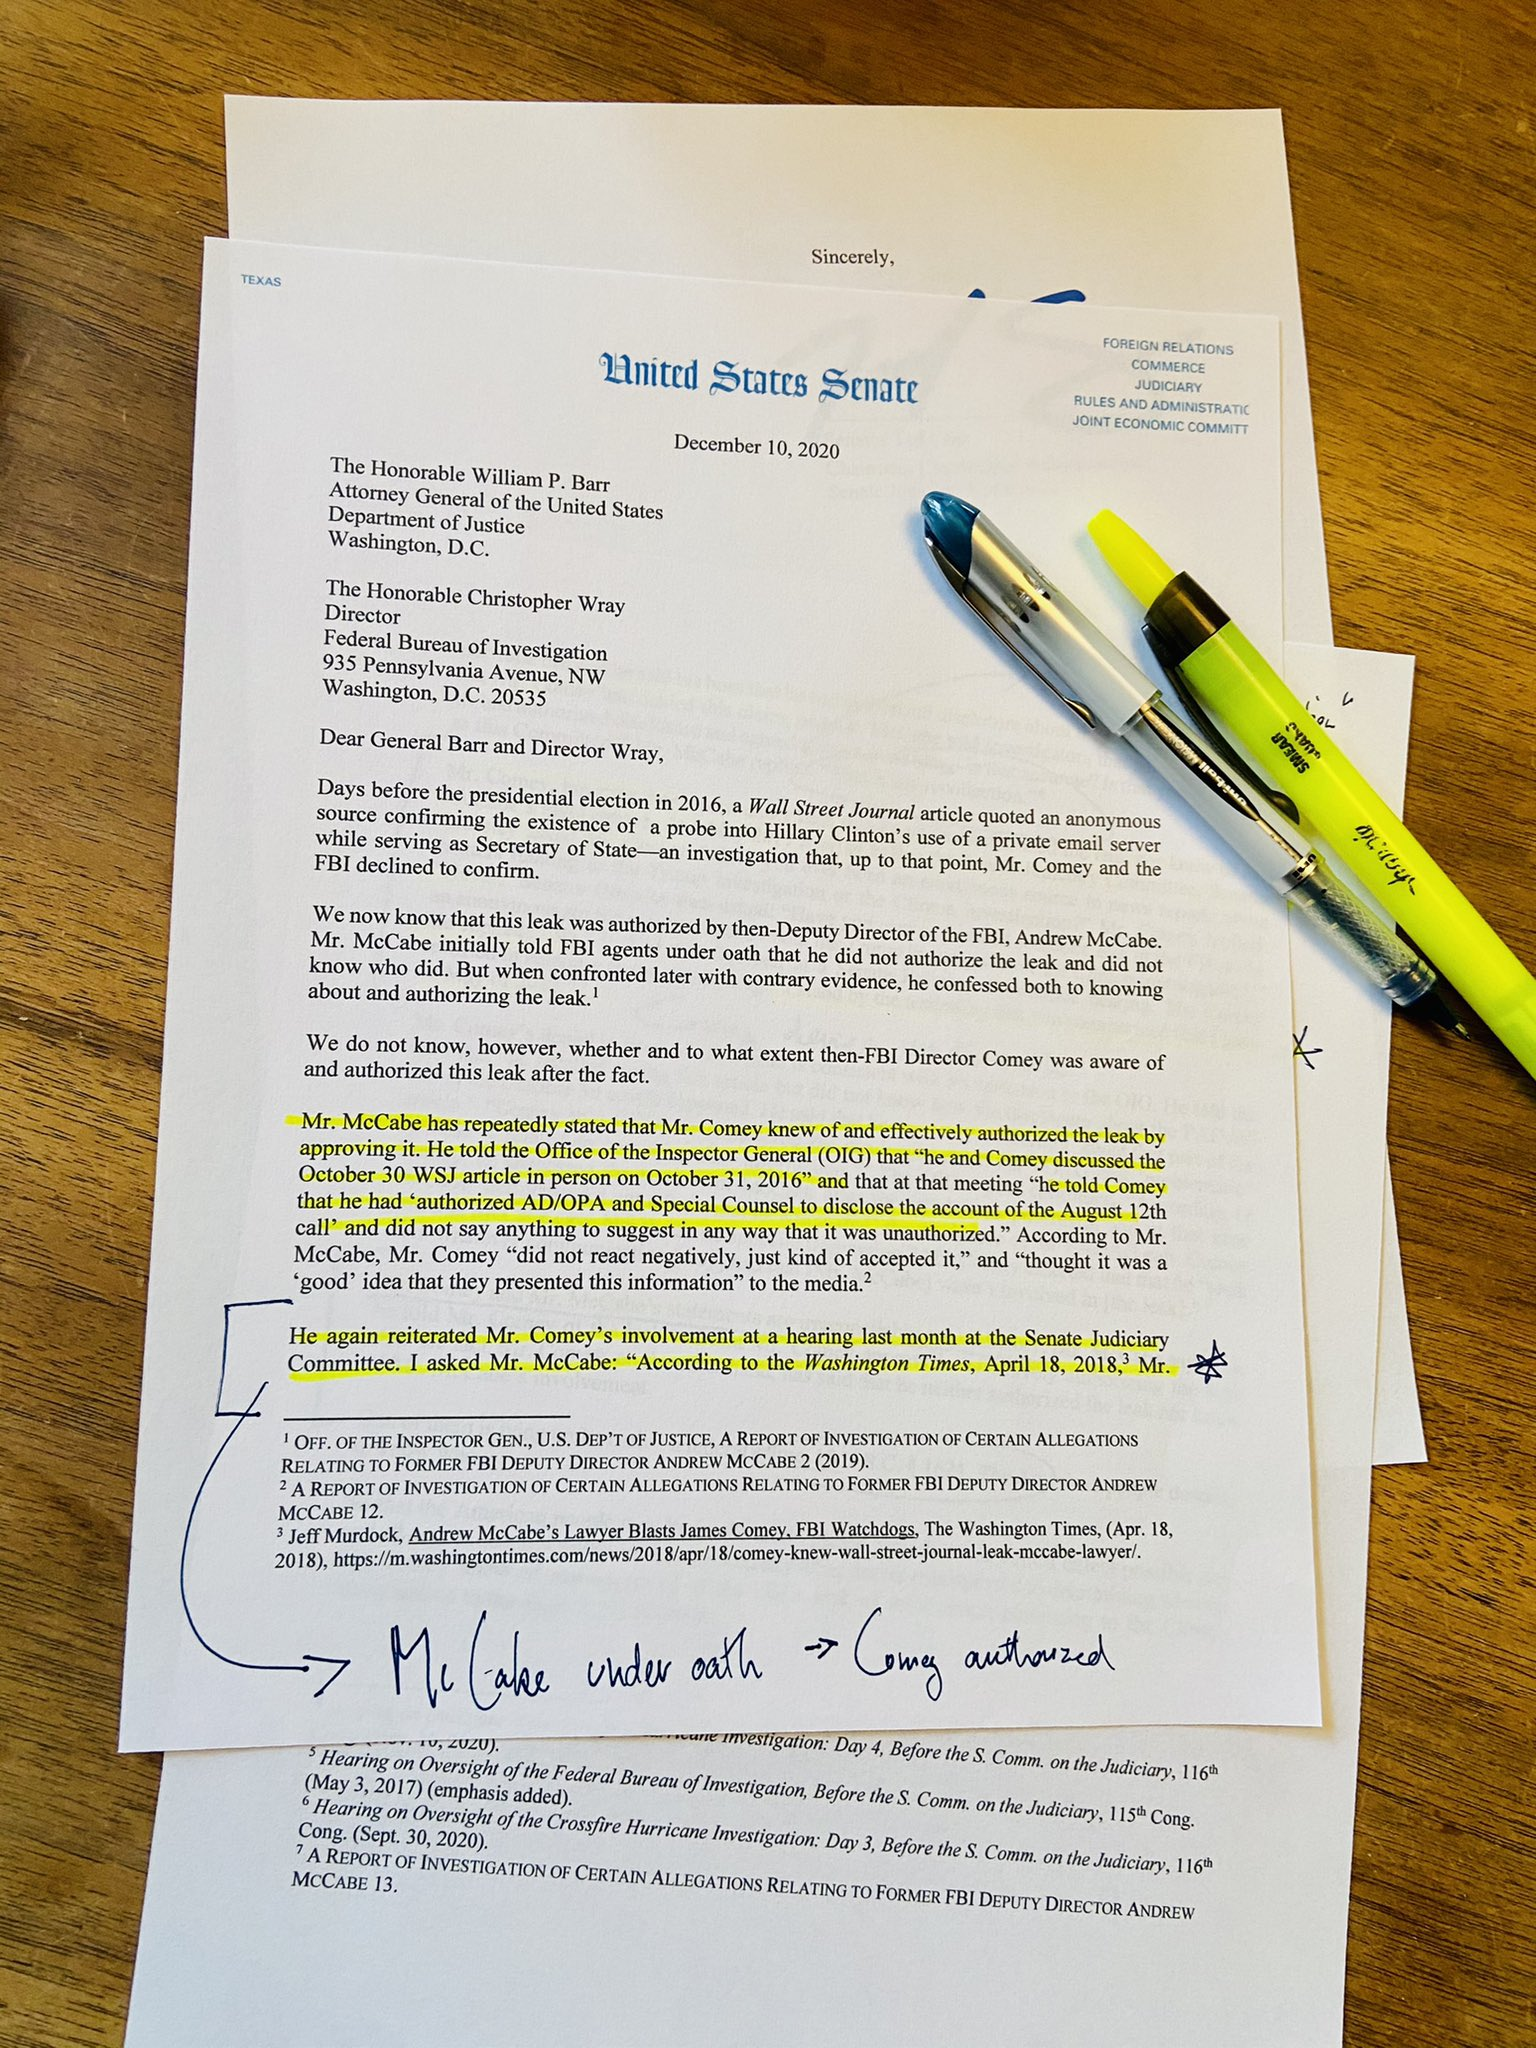 Sincerely,
TEXAS
FOREIGN RELATIONS
COMMERCE
JUDICIARY
RULES AND ADMINISTRATIC
JOINT ECONOMIC COMMITT
United States Senate
December 10, 2020
The Honorable William P. Barr
Attorney General of the United States
Department of Justice
Washington, D.C.
The Honorable Christopher Wray
Director
Federal Bureau of Investigation
935 Pennsylvania Avenue, NW
Washington, D.C. 20535
Dear General Barr and Director Wray,
Days before the presidential election in 2016, a Wall Street Journal article quoted an anonymous
source confirming the existence of a probe into Hillary Clinton's use of a private email server
while serving as Secretary of State—an investigation that, up to that point, Mr. Comey and the
FBI declined to confirm.
We now know that this leak was authorized by then-Deputy Director of the FBI, Andrew McCabe.
Mr. McCabe initially told FBI agents under oath that he did not authorize the leak and did not
know who did. But when confronted later with contrary evidence, he confessed both to knowing
about and authorizing the leak.1
We do not know, however, whether and to what extent then-FBI Director Comey was aware of
and authorized this leak after the fact.
Mr. McCabe has repeatedly stated that Mr. Comey knew of and effectively authorized the leak by
approving it. He told the Office of the Inspector General (OIG) that “he and Comey discussed the
October 30 WSJ article in person on October 31, 2016” and that at that meeting “he told Comey
that he had ‘authorized AD/OPA and Special Counsel to disclose the account of the August 12th
call’ and did not say anything to suggest in any way that it was unauthorized.” According to Mr.
McCabe, Mr. Comey “did not react negatively, just kind of accepted it,” and “thought it was a
‘good’ idea that they presented this information” to the media.2
He again reiterated Mr. Comey's involvement at a hearing last month at the Senate Judiciary
Committee. I asked Mr. McCabe: “According to the Washington Times, April 18, 2018,3 Mr.
1 OFF. OF THE INSPECTOR GEN., U.S. DEP'T OF JUSTICE, A REPORT OF INVESTIGATION OF CERTAIN ALLEGATIONS
RELATING TO FORMER FBI DEPUTY DIRECTOR ANDREW MCCABE 2 (2019).
2 A REPORT OF INVESTIGATION OF CERTAIN ALLEGATIONS RELATING TO FORMER FBI DEPUTY DIRECTOR ANDREW
MCCABE 12.
3 Jeff Murdock, Andrew McCabe's Lawyer Blasts James Comey, FBI Watchdogs, The Washington Times, (Apr. 18,
2018), https://m.washingtontimes.com/news/2018/apr/18/comey-knew-wall-street-journal-leak-mccabe-lawyer/.
McCabe under oath → Comey authorized
Investigation: Day 4, Before the S. Comm. on the Judiciary, 116th
10, 2020).
5 Hearing on Oversight of the Federal Bureau of Investigation, Before the S. Comm. on the Judiciary, 115th Cong.
(May 3, 2017) (emphasis added).
6 Hearing on Oversight of the Crossfire Hurricane Investigation: Day 3, Before the S. Comm. on the Judiciary, 116th
Cong. (Sept. 30, 2020).
7 A REPORT OF INVESTIGATION OF CERTAIN ALLEGATIONS RELATING TO FORMER FBI DEPUTY DIRECTOR ANDREW
MCCABE 13.
SMEAR
uni-ball